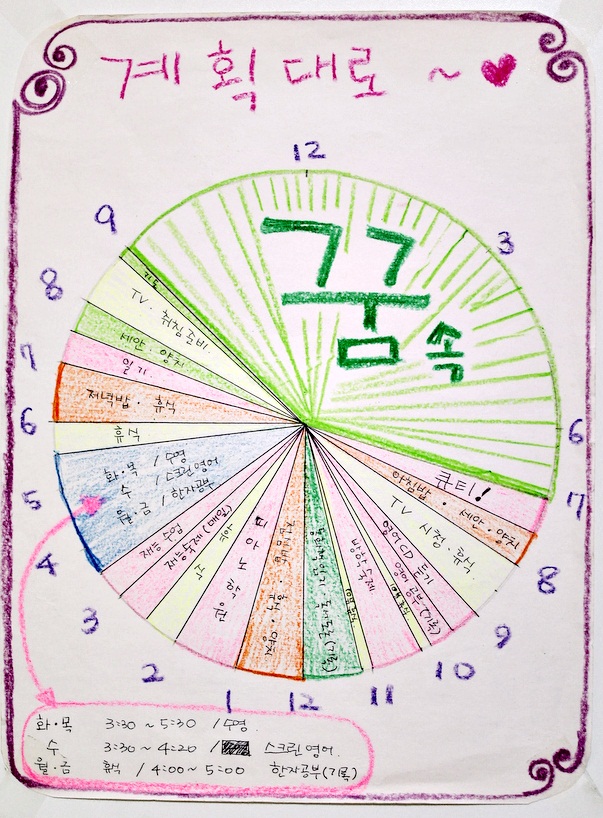 계획대로 ~ ♥
12
9
3
8
7
6
5
4
3
2
1
12
11
10
9
8
7
6
꿈
속
기도
TV · 취침준비
세안 · 양치
일기
저녁밥 · 휴식
휴식
화·목 / 수영
수 / 스크린영어
월·금 / 한자공부
재능수업
재능숙제 (매일)
간식
피아노 학원
점심밥 · 휴식 · 양치
방학숙제
영어CD 듣기
영어공부 (기록)
TV 시청 · 휴식
아침밥 · 세안 · 양치
큐티!
화·목 3:30 ~ 5:30 / 수영
수 3:30 ~ 4:20 / 스크린영어.
월·금 휴식 / 4:00 ~ 5:00 한자공부(기록)